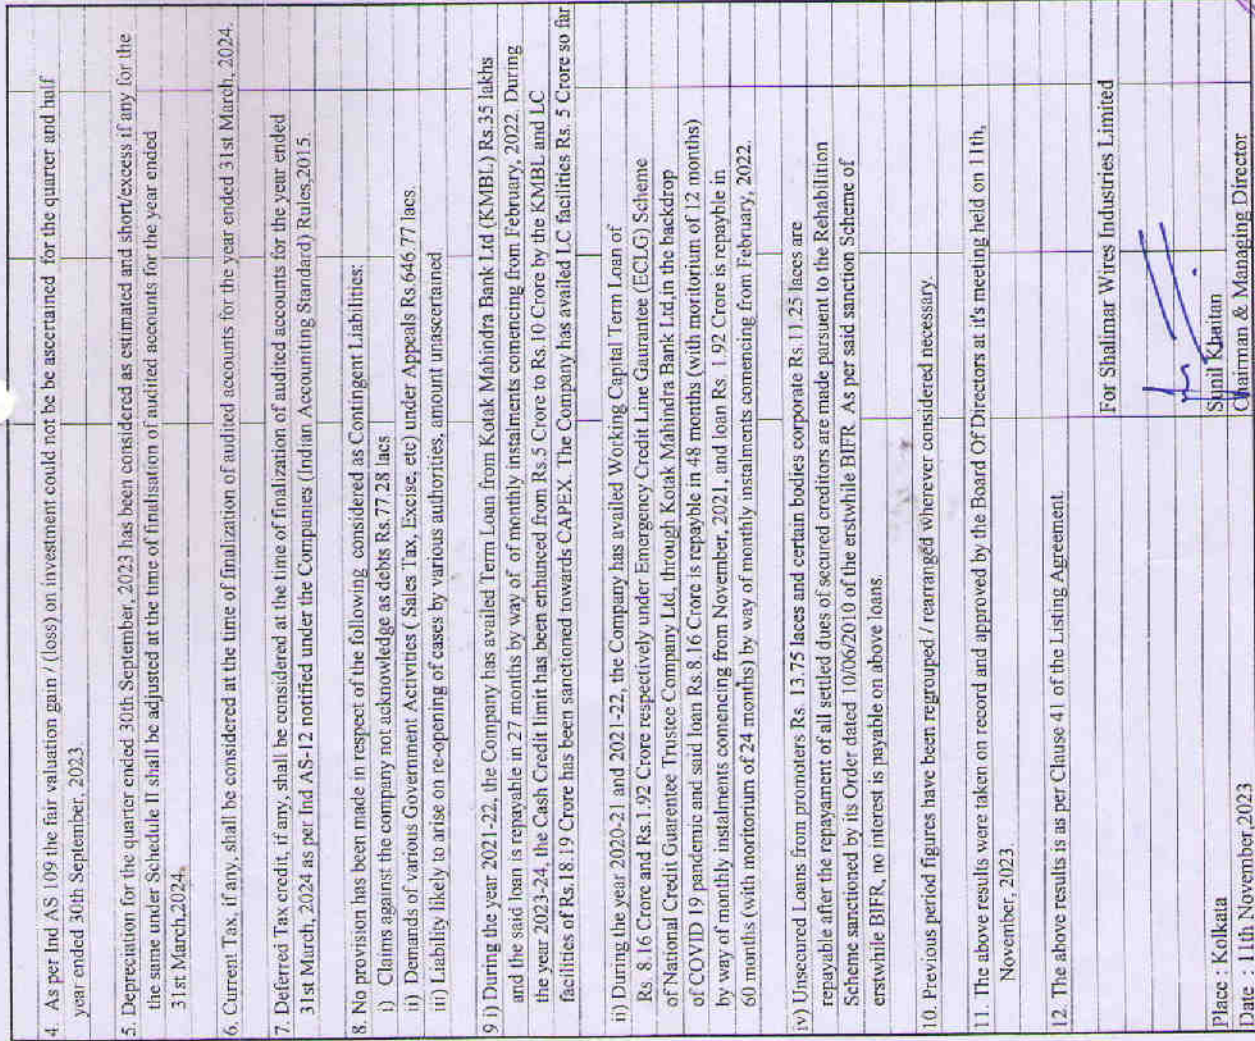 4. As per Ind AS 109 the fair valuation gain / (loss) on investment could not be be ascertained for the quarter and half
year ended 30th September, 2023
5. Depreciation for the quarter ended 30th September, 2023 has been considered as estimated and short/excess if any for the
the same under Schedule II shall be adjusted at the time of finalisation of audited accounts for the year ended
31st March,2024.
6. Current Tax, if any, shall be considered at the time of finalization of audited accounts for the year ended 31st March, 2024.
7. Deferred Tax credit, if any, shall be considered at the time of finalization of audited accounts for the year ended
31st March, 2024 as per Ind AS-12 notified under the Companies (Indian Accounting Standard) Rules,2015.
8. No provision has been made in respect of the following considered as Contingent Liabilities:
i) Claims against the company not acknowledge as debts Rs.77.28 lacs
ii) Demands of various Government Activities ( Sales Tax, Excise, etc) under Appeals Rs.646.77 lacs.
iii) Liability likely to arise on re-opening of cases by various authorities, amount unascertained.
9 i) During the year 2021-22, the Company has availed Term Loan from Kotak Mahindra Bank Ltd (KMBL) Rs.35 lakhs
and the said loan is repayable in 27 months by way of of monthly instalments comencing from February, 2022. During
the year 2023-24, the Cash Credit limit has been enhanced from Rs.5 Crore to Rs.10 Crore by the KMBL and LC
facilities of Rs.18.19 Crore has been sanctioned towards CAPEX. The Company has availed LC facilities Rs. 5 Crore so far
ii) During the year 2020-21 and 2021-22, the Company has availed Working Capital Term Loan of
Rs. 8.16 Crore and Rs.1.92 Crore respectively under Emergency Credit Line Gaurantee (ECLG) Scheme
of National Credit Guarentee Trustee Company Ltd, through Kotak Mahindra Bank Ltd,in the backdrop
of COVID 19 pandemic and said loan Rs.8.16 Crore is repayble in 48 months (with moritorium of 12 months)
by way of monthly instalments comencing from November, 2021, and loan Rs. 1.92 Crore is repayble in
60 months (with moritorium of 24 months) by way of monthly instalments comencing from February, 2022.
iv) Unsecured Loans from promoters Rs. 13.75 laces and certain bodies corporate Rs.11.25 laces are
repayable after the repayment of all settled dues of secured creditors are made pursuent to the Rehabilitation
Scheme sanctioned by its Order dated 10/06/2010 of the erstwhile BIFR. As per said sanction Scheme of
erstwhile BIFR, no interest is payable on above loans.
10. Previous period figures have been regrouped / rearranged wherever considered necessary.
11. The above results were taken on record and approved by the Board Of Directors at it's meeting held on 11th,
November, 2023.
12. The above results is as per Clause 41 of the Listing Agreement.
For Shalimar Wires Industries Limited
Sunil Khaitan
Chairman & Managing Director
Place : Kolkata
Date : 11th November,2023